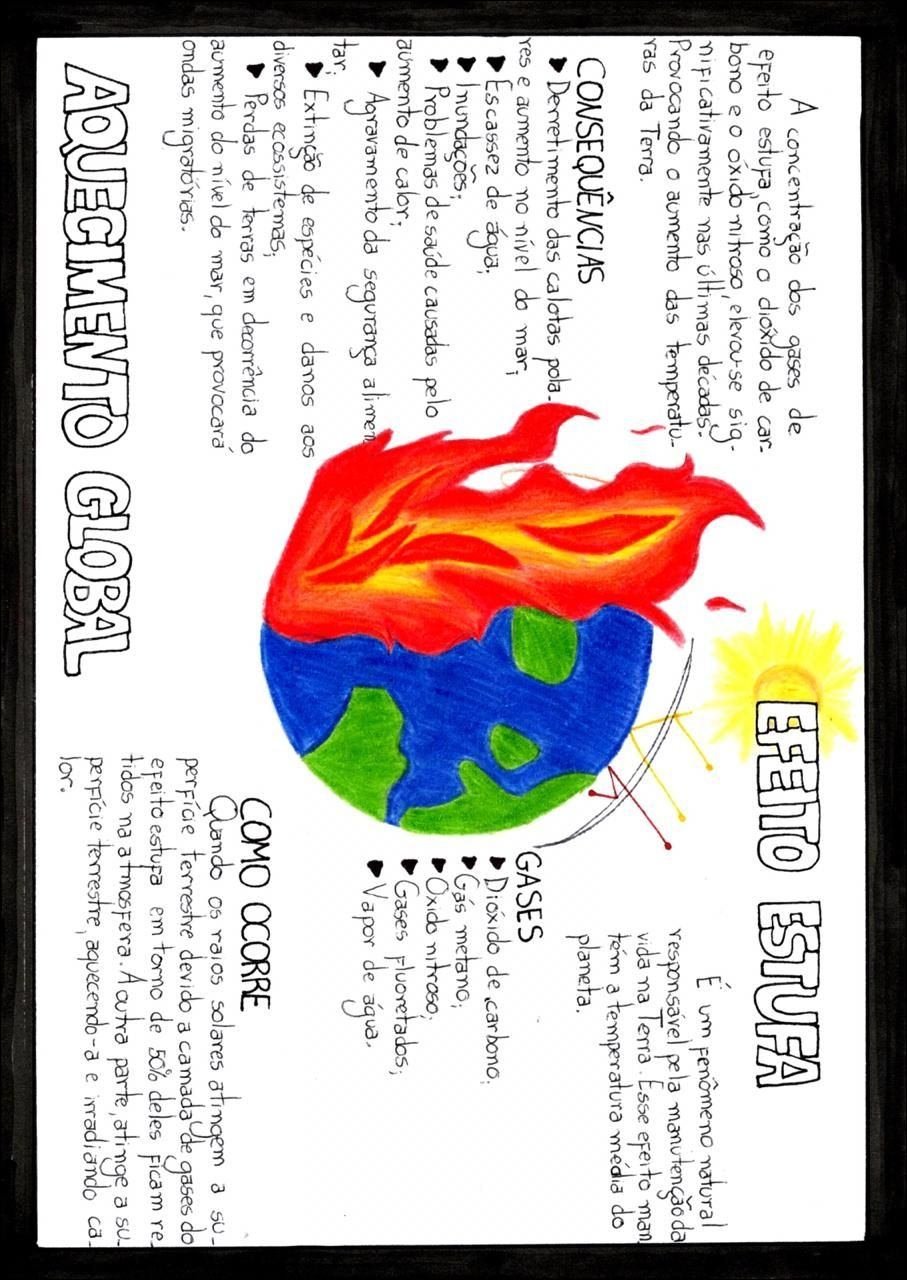 A concentração dos gases de
efeito estufa, como o dióxido de car-
bono e o óxido nitroso, elevou-se sig-
nificativamente nas últimas décadas.
Provocando o aumento das temperatu-
ras da Terra.
CONSEQUÊNCIAS
Derretimento das calotas pola-
res e aumento no nível do mar;
Escassez de água;
Inundações;
Problemas de saúde causadas pelo
aumento de calor;
Agravamento da segurança alimen
tar;
Extinção de espécies e danos aos
diversos ecossistemas;
Perdas de terras em decorrência do
aumento do nível do mar, que provocará
ondas migratórias.
AQUECIMENTO GLOBAL
EFEITO ESTUFA
É um fenômeno natural
responsável pela manutenção da
vida na Terra. Esse efeito man
têm a temperatura média do
planeta.
GASES
Dióxido de carbono;
Gás metano;
Óxido nitroso;
Gases fluoretados;
Vapor de água.
COMO OCORRE
Quando os raios solares atingem a su-
perfície terrestre devido a camada de gases do
efeito estufa em torno de 50% deles ficam re
tidos na atmosfera. A outra parte, atinge a su-
perfície terrestre, aquecendo-a e irradiando ca-
lor.